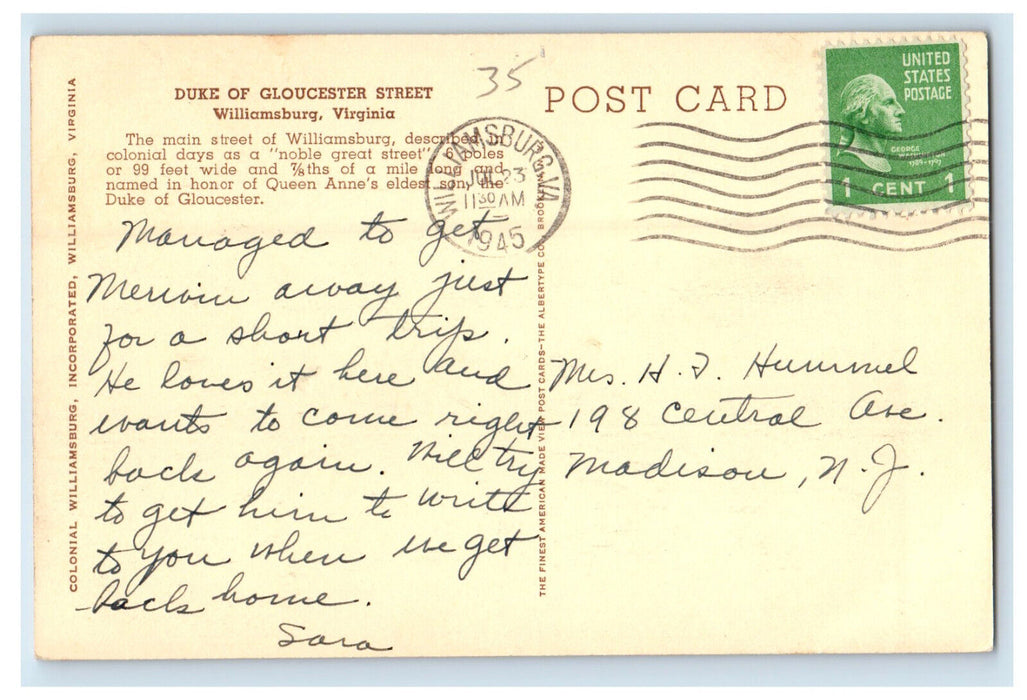 35
DUKE OF GLOUCESTER STREET
Williamsburg, Virginia
The main street of Williamsburg, described in
colonial days as a "noble great street" 6 poles
or 99 feet wide and ⅞ths of a mile long and
named in honor of Queen Anne's eldest son, the
Duke of Gloucester.
COLONIAL WILLIAMSBURG, INCORPORATED, WILLIAMSBURG, VIRGINIA
POST CARD
WILLIAMSBURG, VA.
23
11 30 AM
1945
UNITED
STATES
POSTAGE
GEORGE
WASHINGTON
1789-1797
1 CENT 1
THE FINEST AMERICAN MADE VIEW POST CARDS—THE ALBERTYPE CO., BROOKLYN
Managed to get
Mervin away just
for a short trip.
He loves it here and
wants to come right
back again. Will try
to get him to write
to you when we get
back home.
Sara
Mrs. H. F. Hummel
198 Central Ave.
Madison, N. J.